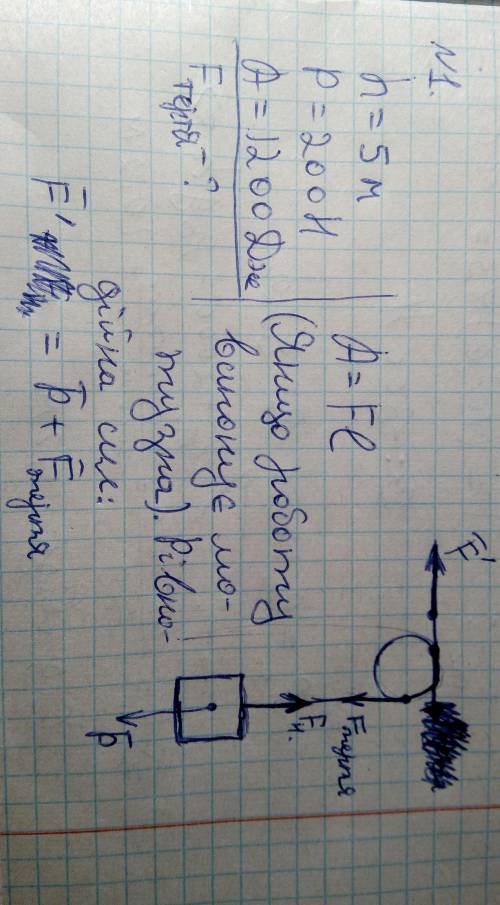 №1.
h = 5 м
P = 200 Н
A = 1200 Дж
F тертя - ?
A = Fl
(Якщо роботу
виконує мо-
тузка). Рівно-
дійна сил:
F' = P + F тертя
F'
F тертя
F н.
P